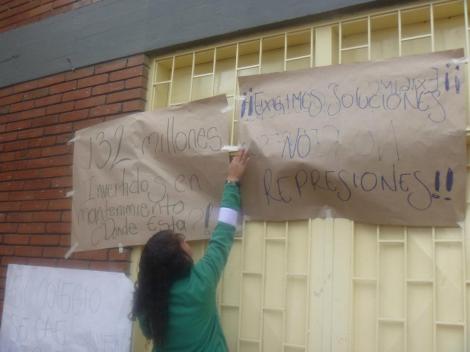 132 millones
Invertidos en
mantenimiento
¿Donde Esta
¡¡EXIGIMOS SOLUCIONES
NO
REPRESIONES!!
COLEGIO
SE CAE